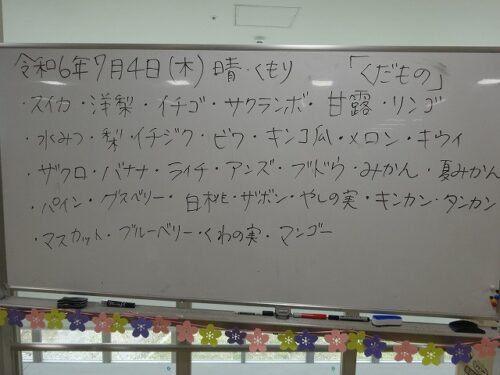 令和6年7月4日(木) 晴・くもり 「くだもの」
・スイカ・洋梨・イチゴ・サクランボ・甘露・リンゴ
水みつ・梨・イチジク・ビワ・キンコ瓜・メロン・キウイ
・ザクロ・バナナ・ライチ・アンズ・ブドウ・みかん・夏みかん
・パイン・グスベリー・白桃・ザボン・やしの実・キンカン・タンカン
・マスカット・ブルーベリー・くわの実・マンゴー